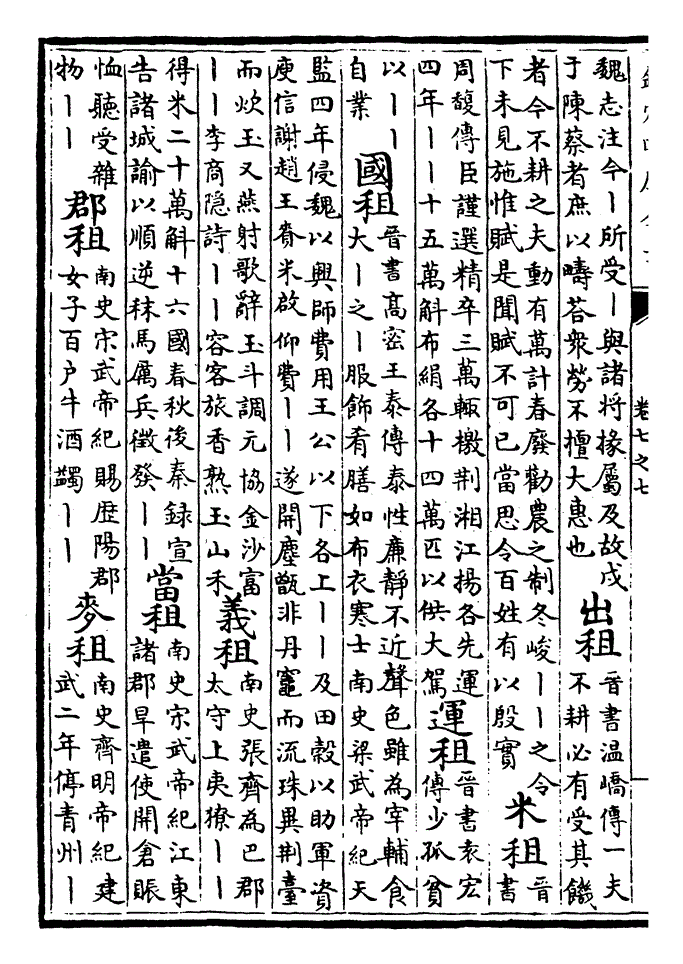 卷七之七
魏志注令丨所受丨與諸將掾屬及故戍
于陳蔡者庶以疇荅衆勞不擅大惠也
出租
晉書温嶠傳一夫
不耕必有受其饑
者今不耕之夫動有萬計春廢勸農之制冬峻丨丨之令
下未見施惟賦是聞賦不可已當思令百姓有以殷實
米租
晉
書
周馥傳臣謹選精卒三萬輙檄荆湘江揚各先運
四年丨丨十五萬斛布絹各十四萬匹以供大駕
運租
晉書袁宏
傳少孤貧
以丨丨
自業
國租
晉書高密王泰傳泰性廉靜不近聲色雖為宰輔食
大丨之丨服飾肴膳如布衣寒士南史梁武帝紀天
監四年侵魏以興師費用王公以下各上丨丨及田榖以助軍資
庾信謝趙王賚米啟仰費丨丨遂開塵甑非丹竈而流珠異荆臺
而炊玉又燕射歌辭玉斗調元協金沙富
丨丨李商隐詩丨丨容客旅香熟玉山禾
義租
南史張齊為巴郡
太守上夷獠丨丨
得米二十萬斛十六國春秋後秦録宣
告諸城諭以順逆秣馬厲兵徵發丨丨
當租
南史宋武帝紀江東
諸郡旱遣使開倉賑
恤聽受雜
物丨丨
郡租
南史宋武帝紀賜歴陽郡
女子百户牛酒蠲丨丨
麥租
南史齊明帝紀建
武二年停青州丨